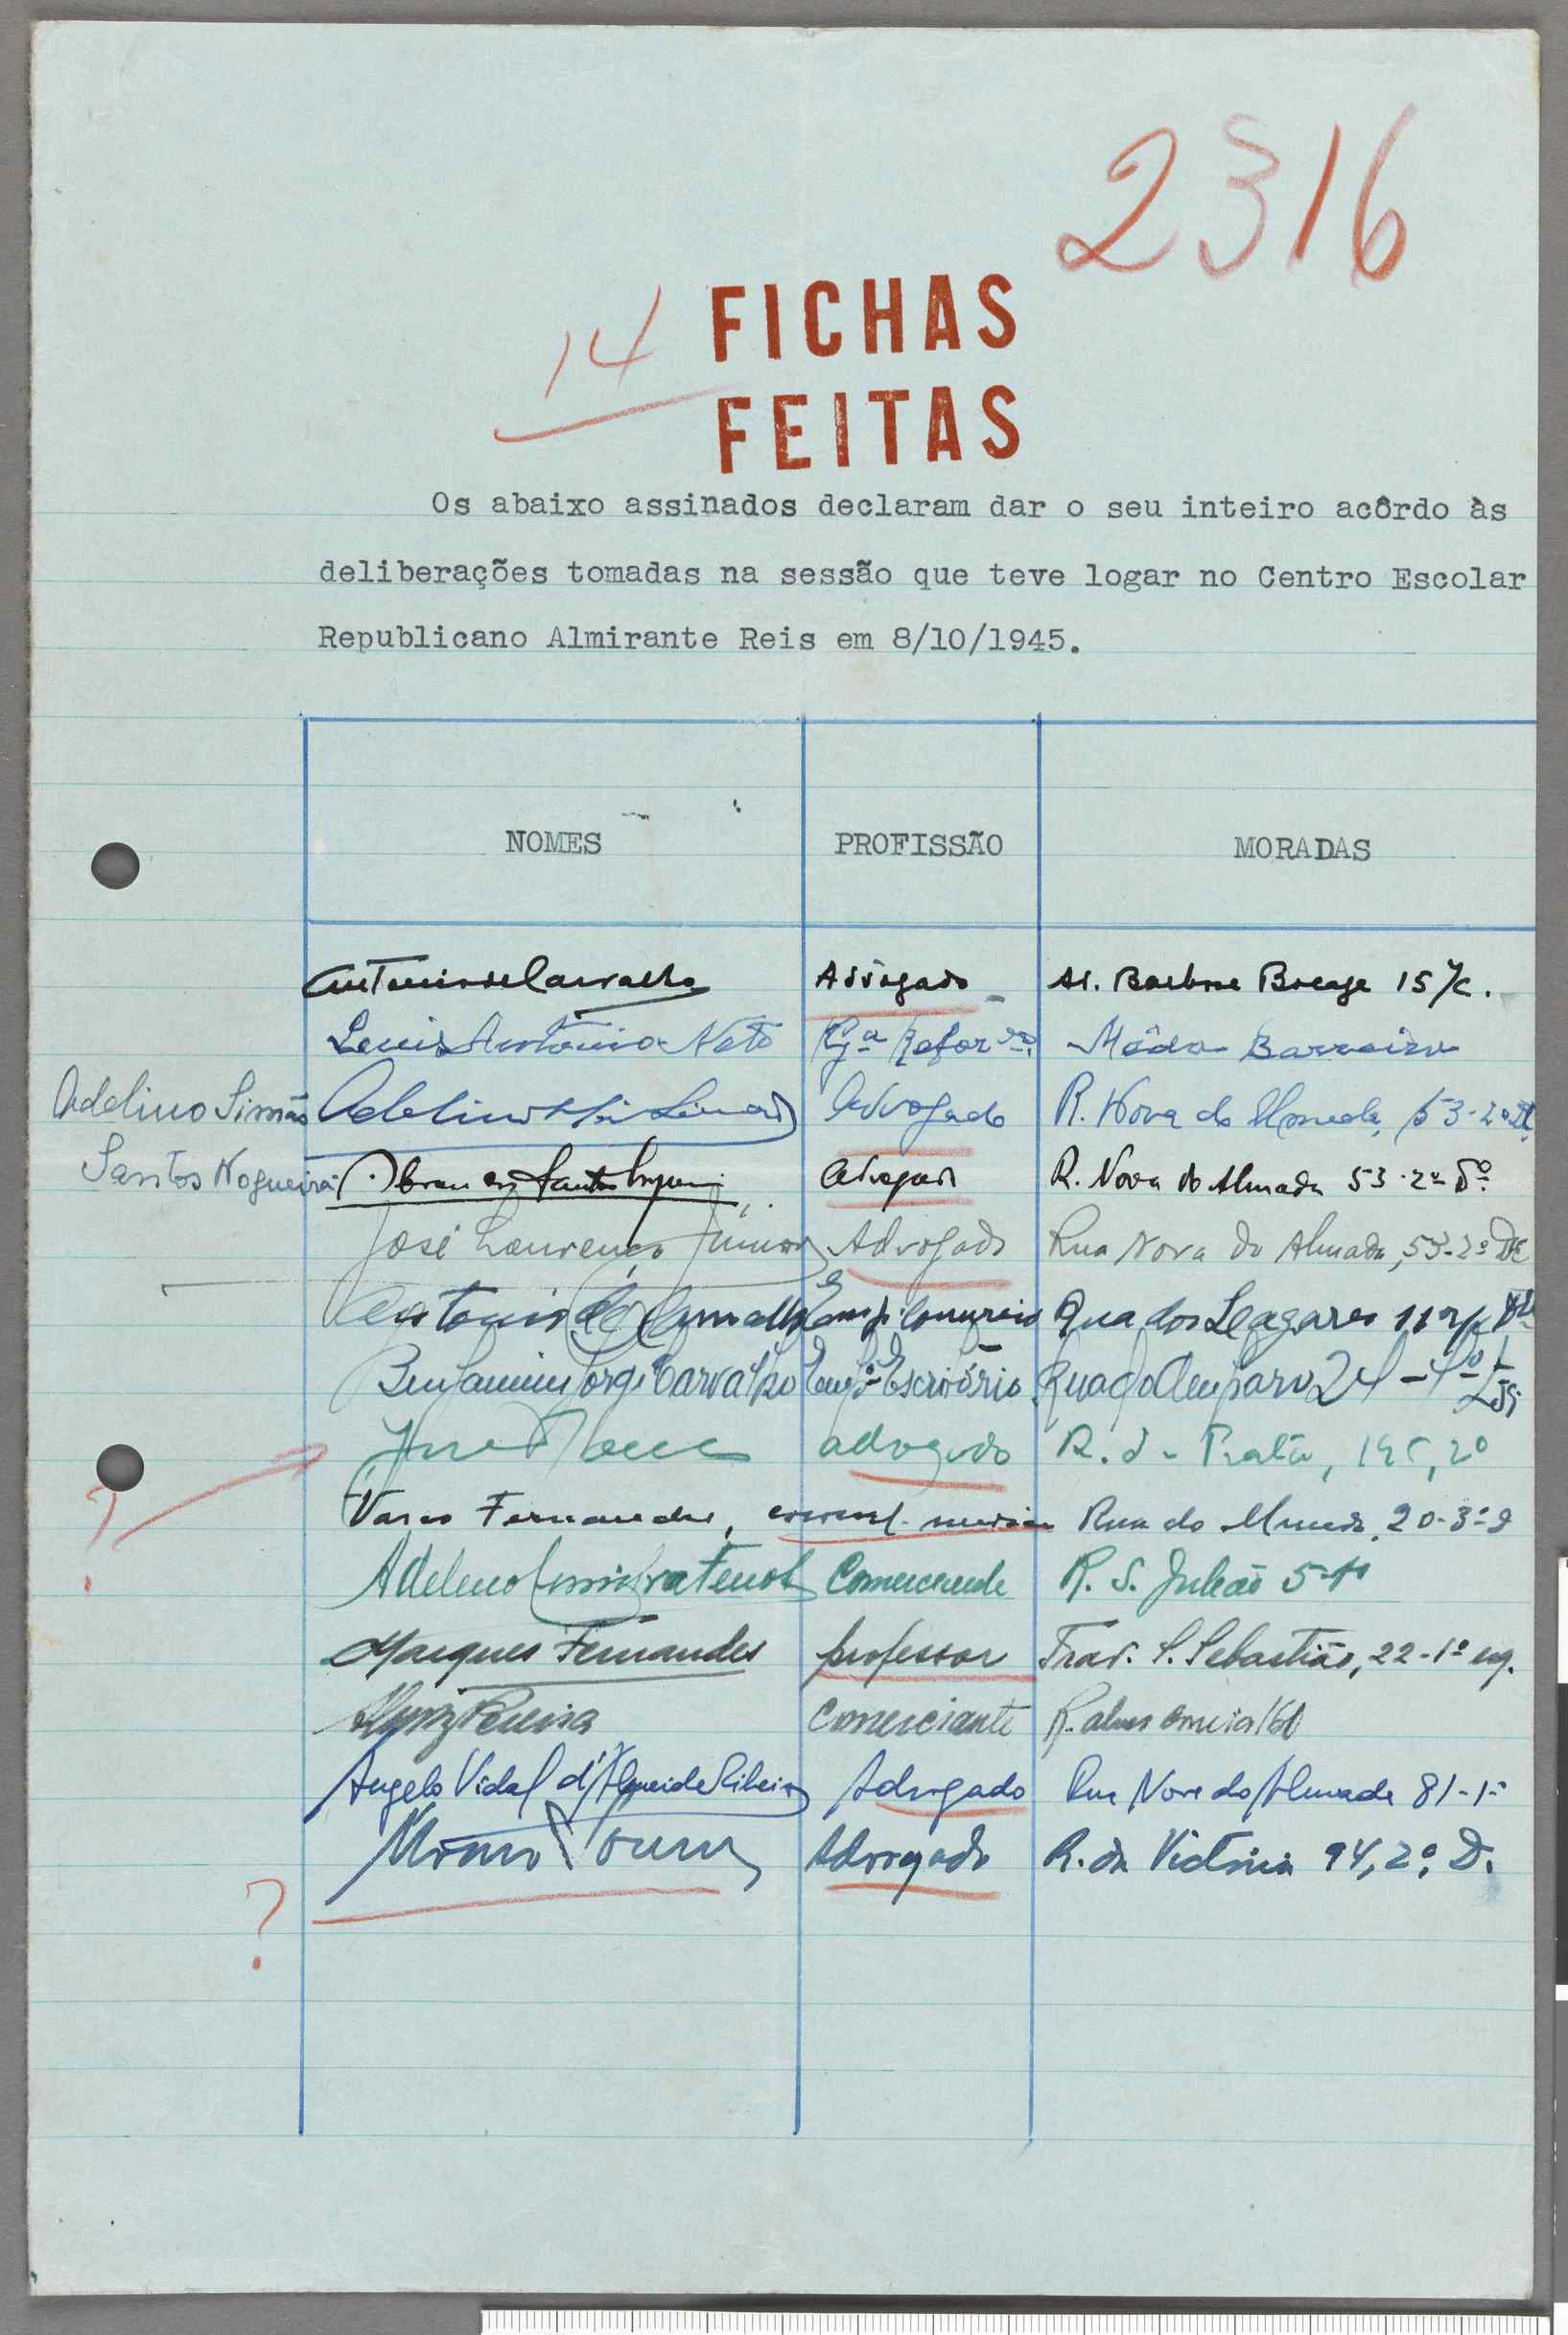 2316
14
FICHAS
FEITAS
Os abaixo assinados declaram dar o seu inteiro acôrdo às
deliberações tomadas na sessão que teve logar no Centro Escolar
Republicano Almirante Reis em 8/10/1945.
NOMES PROFISSÃO MORADAS
Antonio de Carvalho Advogado Av. Barbosa Bocage 15 /c.
Luis Antonio Neto Môda Barreiro
Adelino Simão Adelino Simão Advogado R. Nova do Almada, 53-2º Dt
Santos Nogueira Santos Nogueira Advogado R. Nova do Almada 53-2º Dº
José Lourenço Júnior Advogado Rua Nova do Almada, 53-2º Dt
Antonio de Carvalho Rua dos Lagares 11
Benjamim Jorge Carvalho Empº Escritório Rua do Amparo 24-4º Esq
José advogado R. da Prata, 2º
?
Vasco Fernandes, Rua do Mundo, 20-3º
Adelino Comerciante R. S. Julião
Marques Fernandes professor Trav. S. Sebastião, 22-1º esq.
Pereira Comerciante R. Alves Correia
Angelo Vidal d'Almeida Ribeiro Advogado Rua Nova do Almada 81-1º
Advogado R. da Victória 94, 2º, D.
?